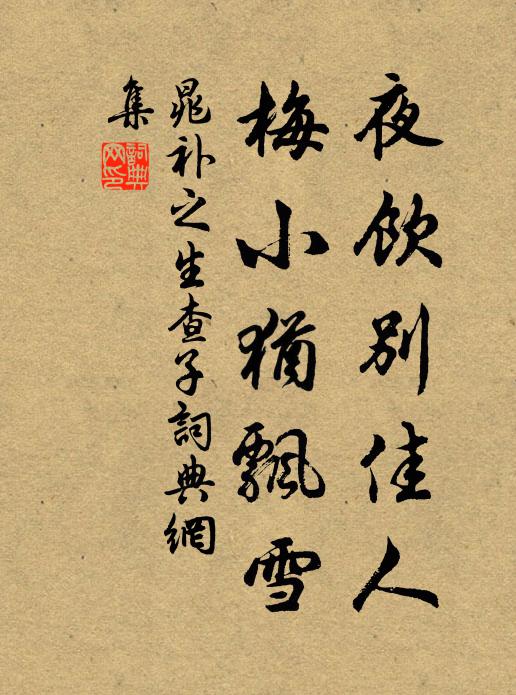 夜飲別佳人
梅小猶飄雪
晁补之生查子詞典網
集
詞典網印